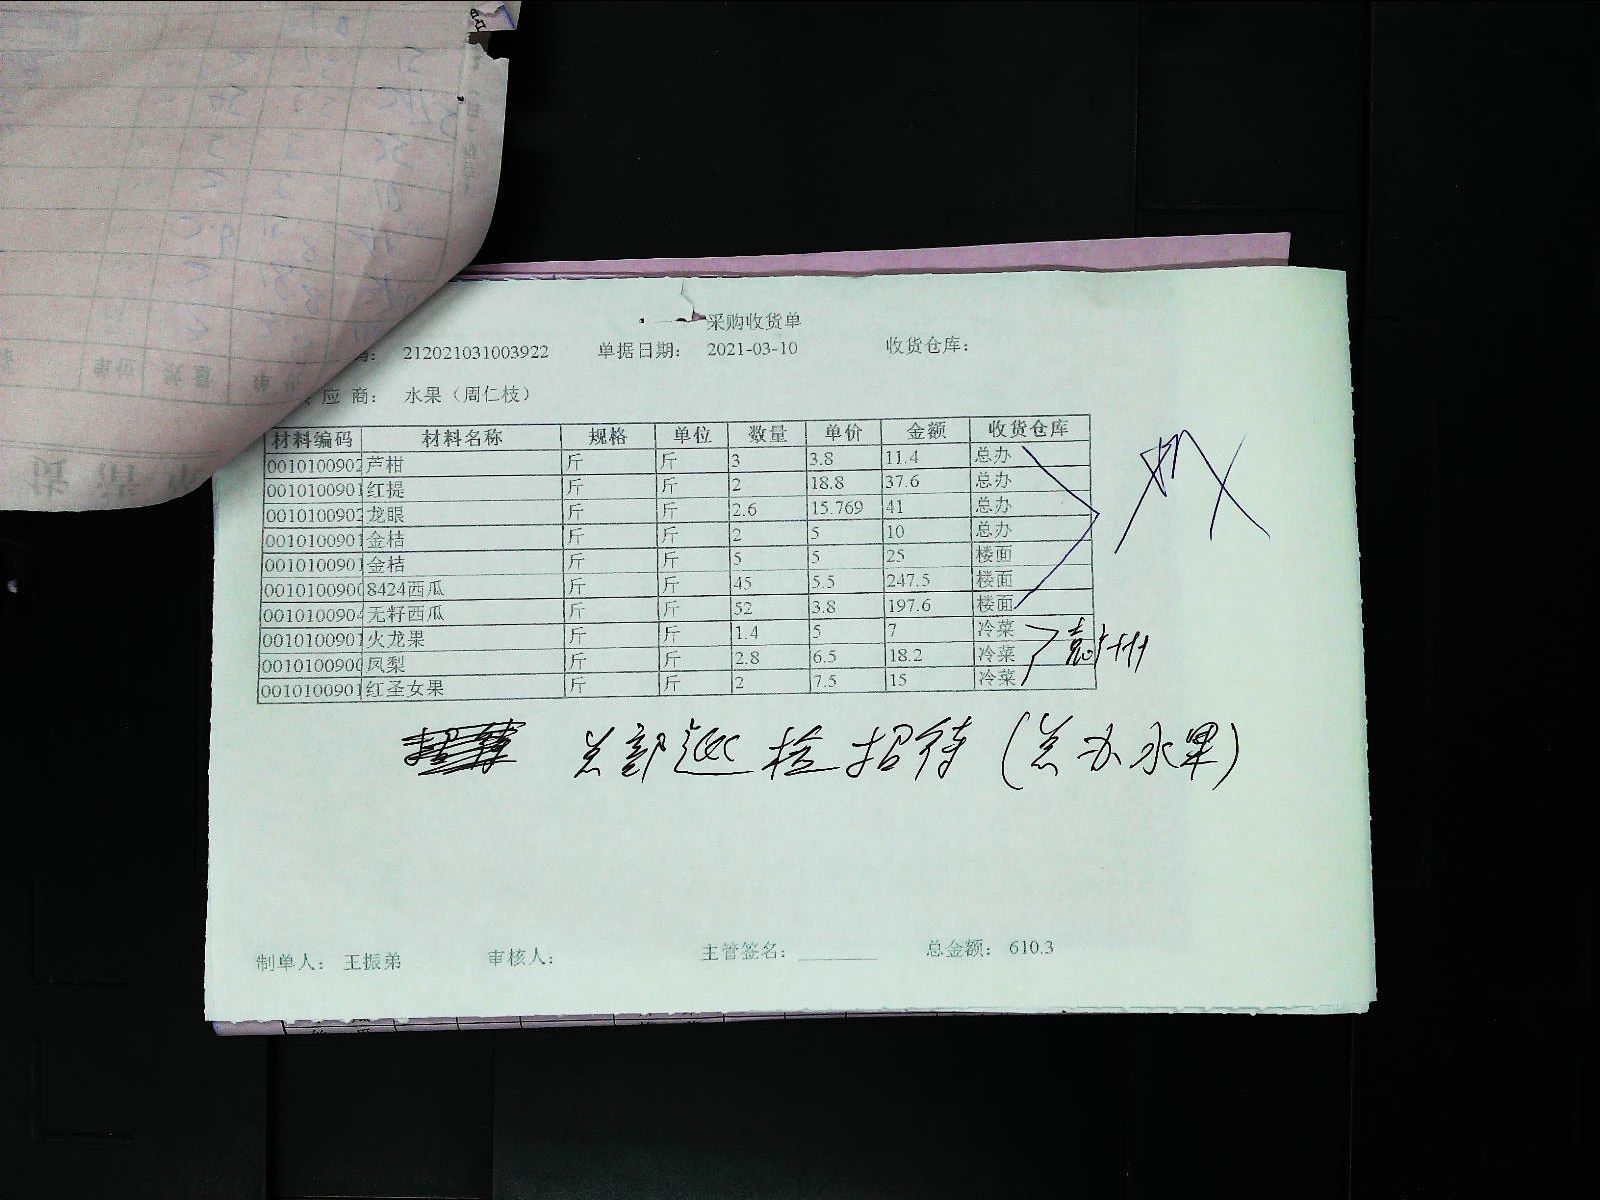 采购收货单
212021031003922 单据日期: 2021-03-10 收货仓库:
应 商: 水果（周仁枝）
材料编码 材料名称 规格 单位 数量 单价 金额 收货仓库
0010100902 芦柑 斤 斤 3 3.8 11.4 总办
0010100901 红提 斤 斤 2 18.8 37.6 总办
0010100902 龙眼 斤 斤 2.6 15.769 41 总办
0010100901 金桔 斤 斤 2 5 10 总办
0010100901 金桔 斤 斤 5 5 25 楼面
0010100900 8424西瓜 斤 斤 45 5.5 247.5 楼面
0010100904 无籽西瓜 斤 斤 52 3.8 197.6 楼面
0010100901 火龙果 斤 斤 1.4 5 7 冷菜
0010100900 凤梨 斤 斤 2.8 6.5 18.2 冷菜
0010100901 红圣女果 斤 斤 2 7.5 15 冷菜
总部巡检招待(总办水果)
制单人: 王振弟 审核人: 主管签名: 总金额: 610.3